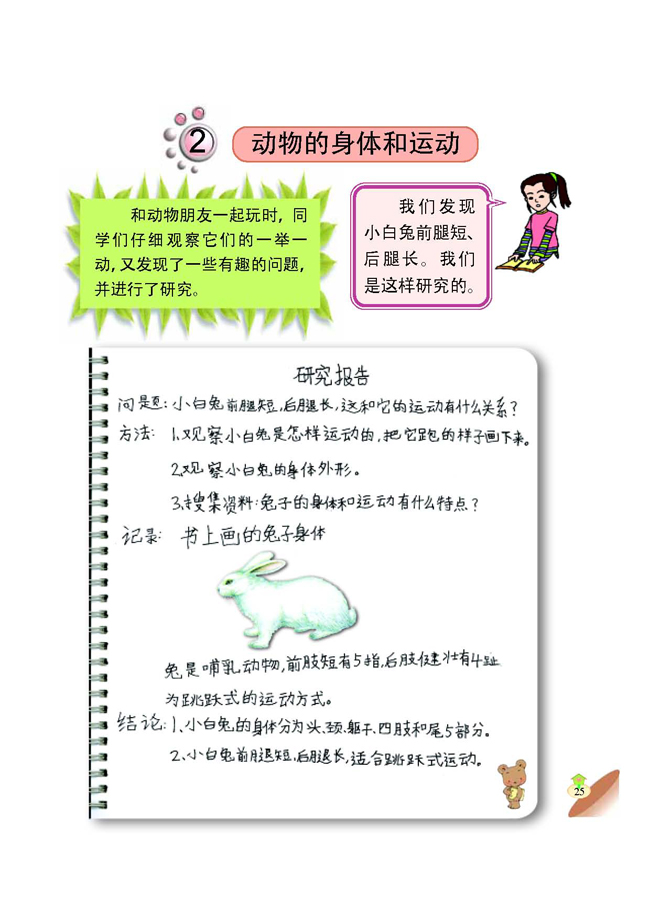 2
动物的身体和运动
和动物朋友一起玩时,同
学们仔细观察它们的一举一
动,又发现了一些有趣的问题,
并进行了研究。
我们发现
小白兔前腿短、
后腿长。我们
是这样研究的。
研究报告
问题:小白兔前腿短,后腿长,这和它的运动有什么关系?
方法: 1.观察小白兔是怎样运动的,把它跑的样子画下来。
2.观察小白兔的身体外形。
3.搜集资料:兔子的身体和运动有什么特点?
记录: 书上画的兔子身体
兔是哺乳动物,前肢短有5指,后肢健壮有4趾
为跳跃式的运动方式。
结论:1、小白兔的身体分为头、颈、躯干、四肢和尾5部分。
2、小白兔前腿短,后腿长,适合跳跃式运动。
25